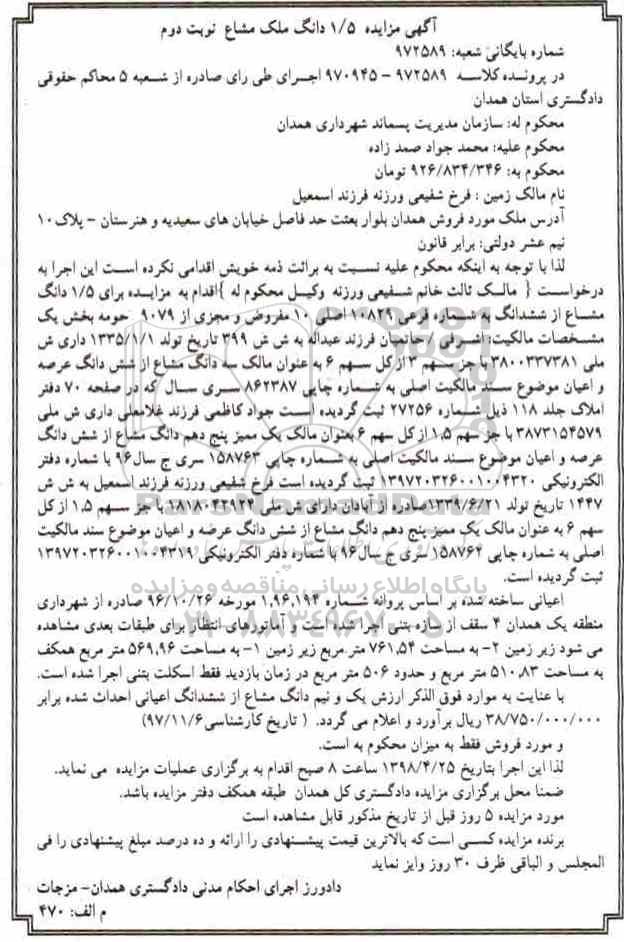 آگهی مزایده ۱/۵ دانگ ملک مشاع نوبت دوم
شماره بایگانی شعبه: ۹۷۲۵۸۹
در پرونده کلاسه ۹۷۲۵۸۹ - ۹۷۰۹۴۵ اجرای طی رای صادره از شعبه ۵ محاکم حقوقی
دادگستری استان همدان
محکوم له: سازمان مدیریت پسماند شهرداری همدان
محکوم علیه: محمد جواد صمد زاده
محکوم به: ۹۲۶/۸۳۴/۳۴۶ تومان
نام مالک زمین : فرخ شفیعی ورزنه فرزند اسمعیل
آدرس ملک مورد فروش همدان بلوار بعثت حد فاصل خیابان های سعیدیه و هنرستان - پلاک۱۰
نیم عشر دولتی: برابر قانون
لذا با توجه به اینکه محکوم علیه نسبت به برائت ذمه خویش اقدامی نکرده است این اجرا به
درخواست { مالک ثالث خانم شفیعی ورزنه وکیل محکوم له }اقدام به مزایده برای ۱/۵ دانگ
مشاع از ششدانگ به شماره فرعی ۱۰۸۲۹ اصلی ۱۰ مفروض و مجزی از ۹۰۷۹ حومه بخش یک
مشخصات مالکیت: اشرفی / حاتمیان فرزند عبداله به ش ش ۳۹۹ تاریخ تولد ۱۳۳۵/۱/۱ داری ش
ملی ۳۸۰۰۳۳۷۳۸۱ با جز سهم ۳ از کل سهم ۶ به عنوان مالک سه دانگ مشاع از شش دانگ عرصه
و اعیان موضوع سند مالکیت اصلی به شماره چاپی ۸۶۲۳۸۷ سری سال که در صفحه ۷۰ دفتر
املاک جلد ۱۱۸ ذیل شماره ۲۷۲۵۶ ثبت گردیده است جواد کاظمی فرزند غلامعلی داری ش ملی
۳۸۷۳۱۵۴۵۷۹ با جز سهم ۱.۵ از کل سهم ۶ بعنوان مالک یک ممیز پنج دهم دانگ مشاع از شش دانگ
عرصه و اعیان موضوع سند مالکیت اصلی به شماره چاپی ۱۵۸۷۶۳ سری ج سال ۹۶ با شماره دفتر
الکترونیکی ۱۳۹۷۲۰۳۲۶۰۰۱۰۰۴۳۲۰ ثبت گردیده است فرخ شفیعی ورزنه فرزند اسمعیل به ش ش
۱۴۴۷ تاریخ تولد ۱۳۳۹/۶/۲۱ صادره از آبادان دارای ش ملی ۱۸۱۸۰۴۲۹۲۴ با جز سهم ۱.۵ از کل
سهم ۶ به عنوان مالک یک ممیز پنج دهم دانگ مشاع از شش دانگ عرضه و اعیان موضوع سند مالکیت
اصلی به شماره چاپی ۱۵۸۷۶۴ سری ج سال ۹۶ با شماره دفتر الکترونیکی ۱۳۹۷۲۰۳۲۶۰۰۱۰۰۴۳۱۹
ثبت گردیده است.
اعیانی ساخته شده بر اساس پروانه شماره ۱,۹۶,۱۹۴ مورخه ۹۶/۱۰/۲۶ صادره از شهرداری
منطقه یک همدان ۴ سقف از سازه بتنی اجرا شده است و آماتورهای انتظار برای طبقات بعدی مشاهده
می شود زیر زمین ۲- به مساحت ۷۶۱,۵۴ متر مربع زیر زمین ۱- به مساحت ۵۶۹,۹۶ متر مربع همکف
به مساحت ۵۱۰,۸۳ متر مربع و حدود ۵۰۶ متر مربع در زمان بازدید فقط اسکلت بتنی اجرا شده است.
با عنایت به موارد فوق الذکر ارزش یک و نیم دانگ مشاع از ششدانگ اعیانی احداث شده برابر
۳۸/۷۵۰/۰۰۰/۰۰۰ ریال برآورد و اعلام می گردد. ( تاریخ کارشناسی ۹۷/۱۱/۶)
و مورد فروش فقط به میزان محکوم به است.
لذا این اجرا بتاریخ ۱۳۹۸/۴/۲۵ ساعت ۸ صبح اقدام به برگزاری عملیات مزایده می نماید.
ضمنا محل برگزاری مزایده دادگستری کل همدان طبقه همکف دفتر مزایده باشد.
مورد مزایده ۵ روز قبل از تاریخ مذکور قابل مشاهده است
برنده مزایده کسی است که بالاترین قیمت پیشنهادی را ارائه و ده درصد مبلغ پیشنهادی را فی
المجلس و الباقی ظرف ۳۰ روز واریز نماید
دادورز اجرای احکام مدنی دادگستری همدان- مزجات
م الف: ۴۷۰
پایگاه اطلاع رسانی مناقصه و مزایده